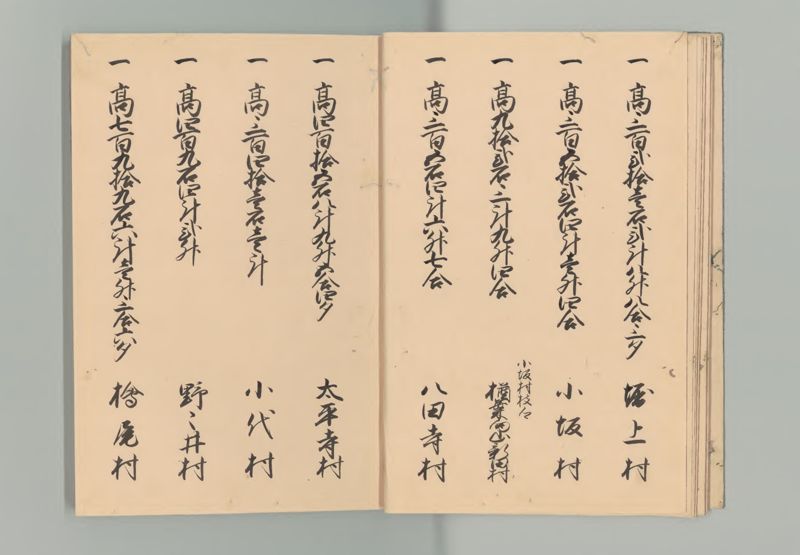 一 高三百弐拾壱石弐斗八升八合三夕 堀上村
一 高三百五拾弐石四斗壱升四合 小坂村
一 高九拾弐石三斗九升四合 小坂村枝 新田村
一 高三百五石四斗六升七合 八田寺村
一 高四百拾五石八斗九升五合四夕 太平寺村
一 高三百四拾壱石壱斗 小代村
一 高四百九石四斗弐升 野々井村
一 高七百九拾九石六斗壱升三合六夕 檜尾村